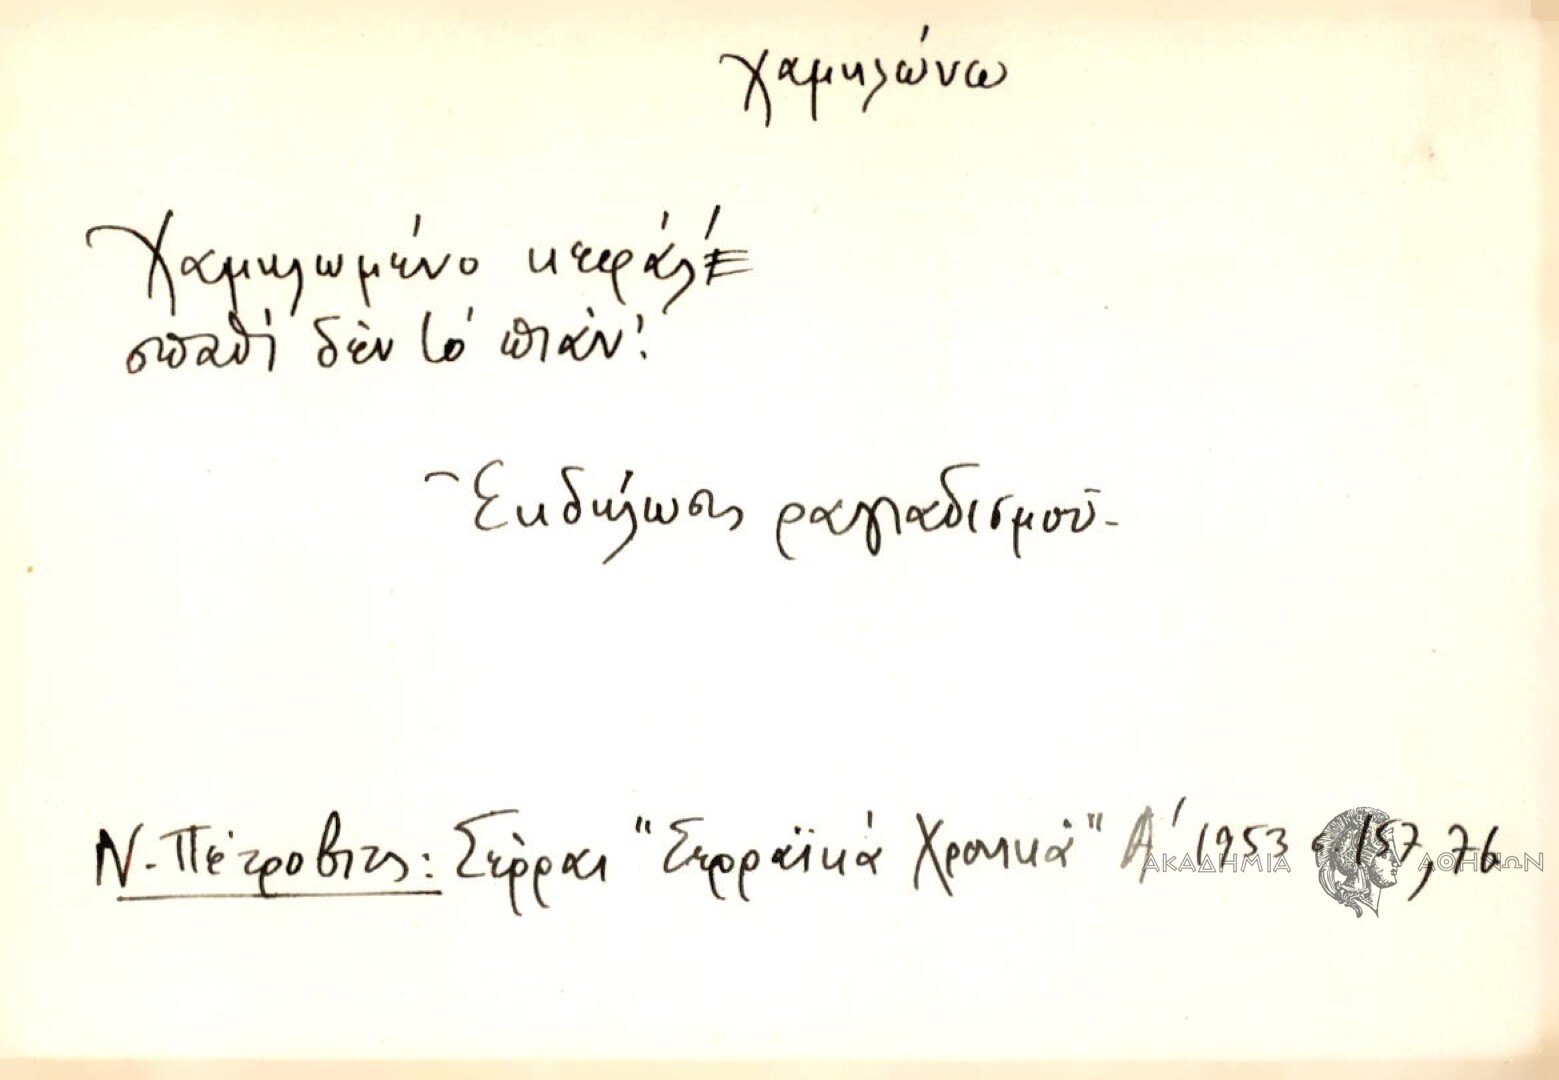 χαμηλώνω
Χαμηλωμένο κεφάλ'
σπαθί δὲν τό πιάν'.
Ἐκδήλωσις ραγιαδισμοῦ-
Ν. Πέτροβιτς: Σέρραι "Σερραϊκά Χρονικά" Α' 1953 σ. 157, 76
ΑΚΑΔΗΜΙΑ ΑΘΗΝΩΝ